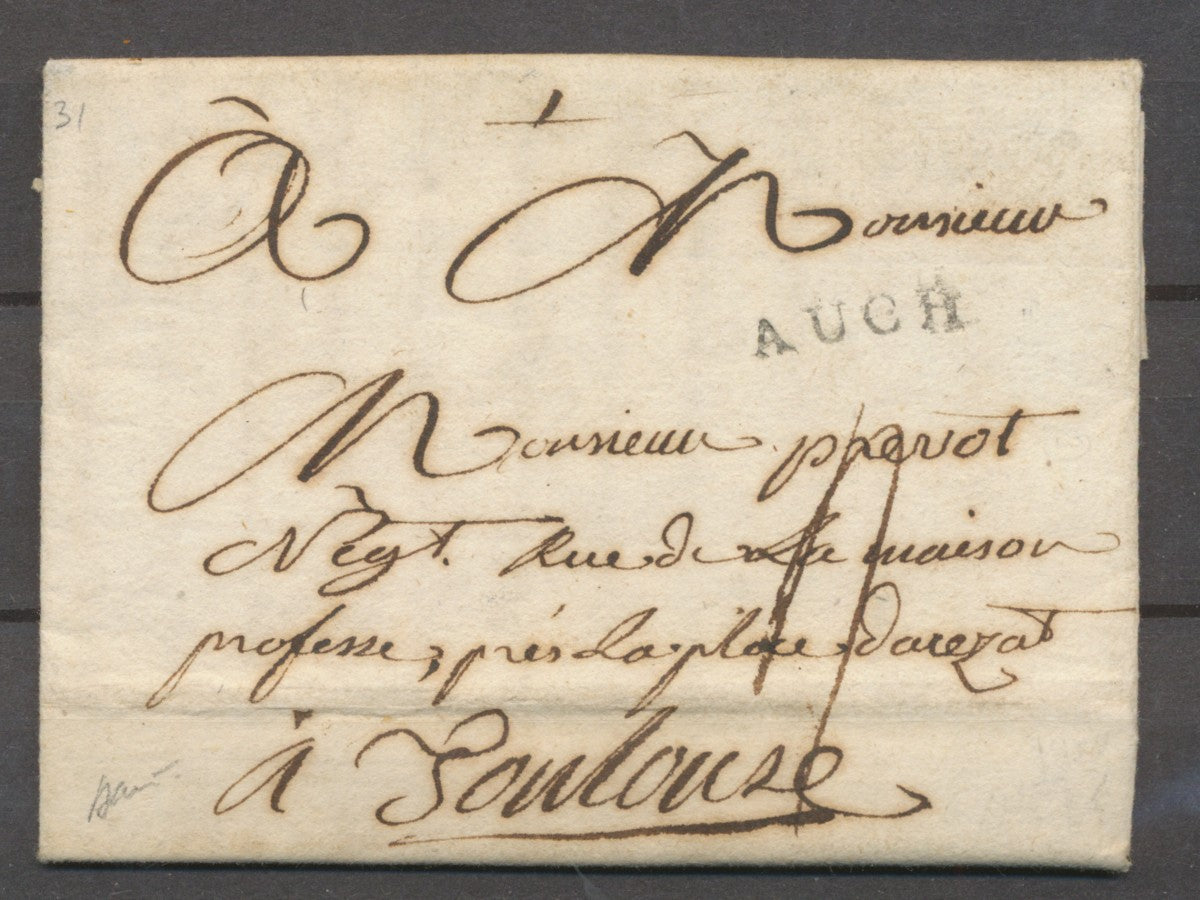 31
À Monsieur
AUCH
Monsieur prevot
Nègt. Rue de La maison
professe, prés La place darezat
à Toulouse